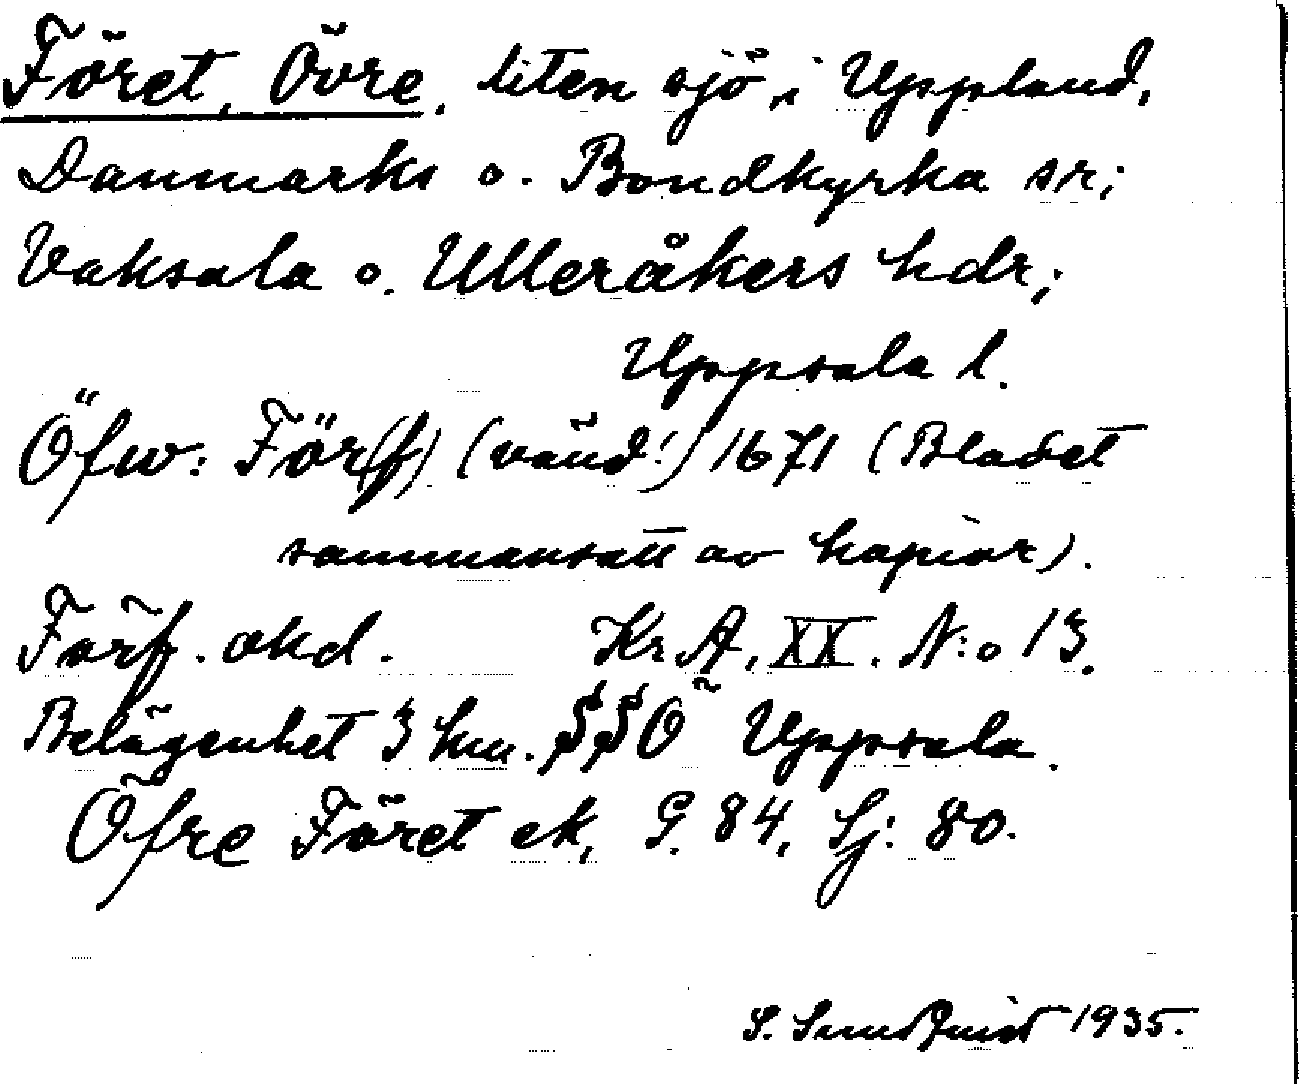 Föret, Övre, liten sjö i Uppland,
Danmarks o. Bondkyrka sr;
Vaksala o. Ulleråkers hdr;
Uppsala l.
Öfw: För(f) (vänd!) 1671 (Bladet
sammansatt av kopior).
Förf. okd. Kr.A, XX. N:o 13.
Belägenhet 3 km. SSO Uppsala.
Öfre Föret ek, G. 84, Sj: 80.
S. Sundquist 1935.